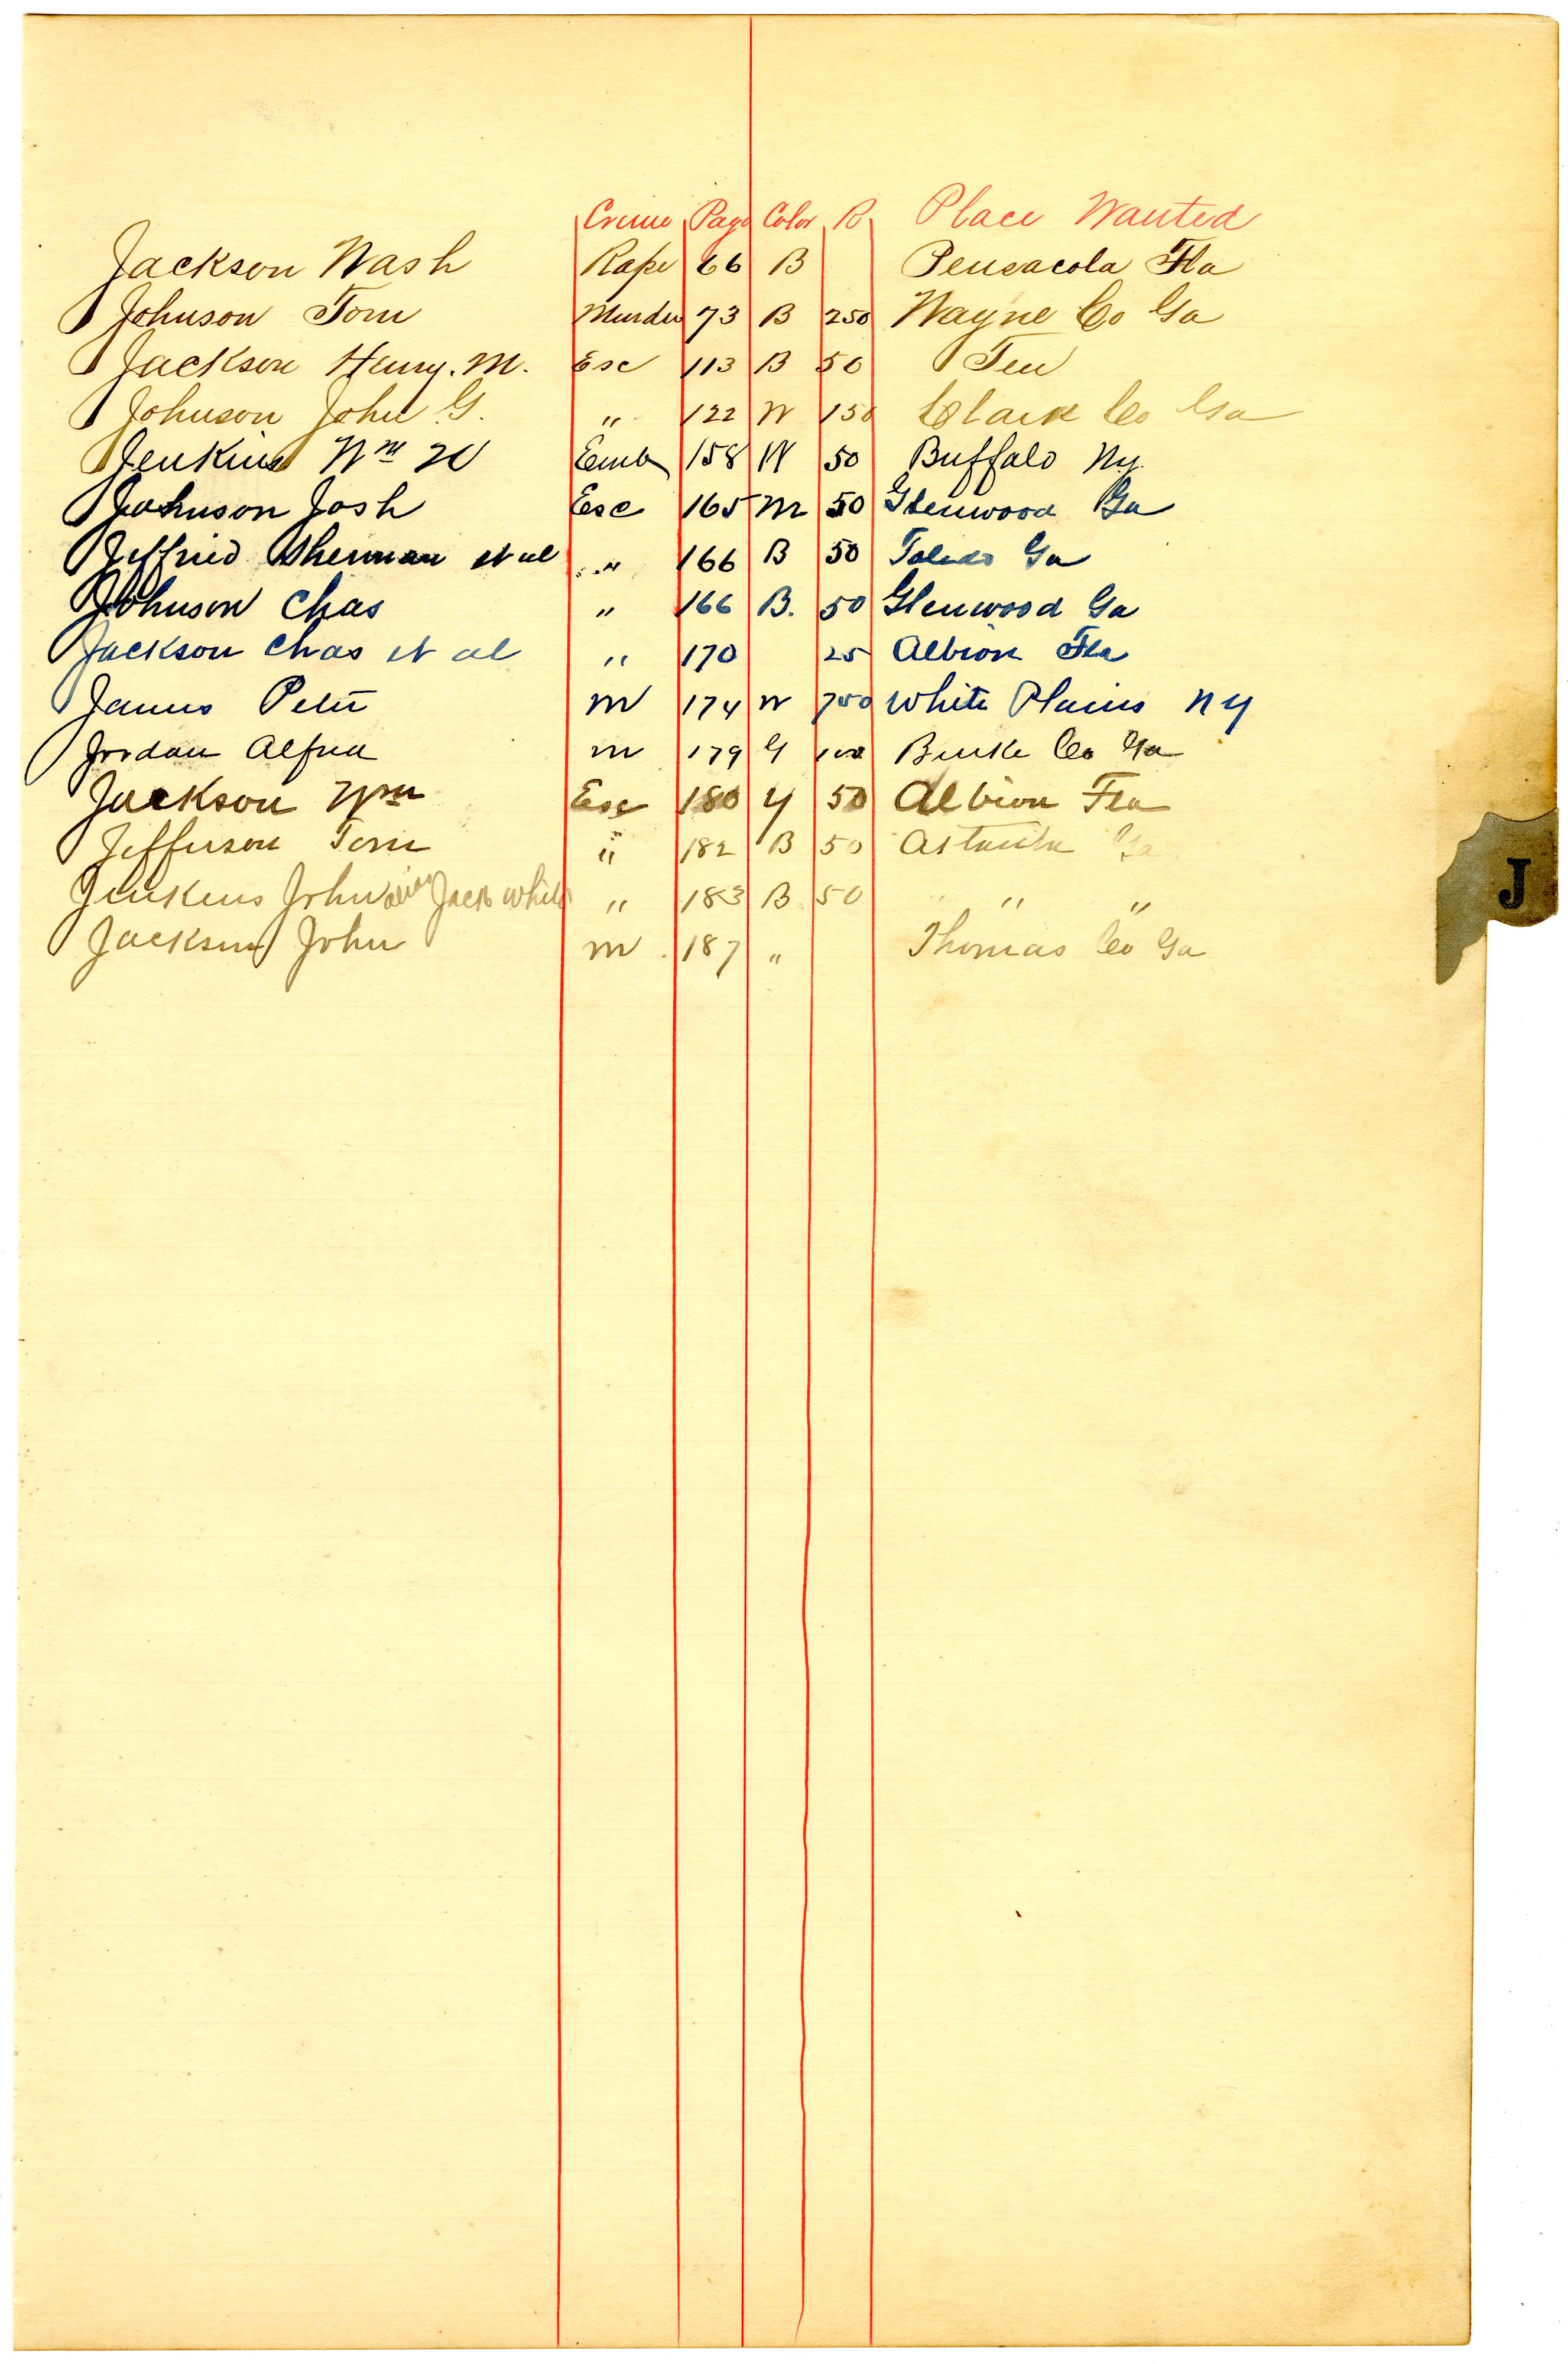 Crime Page Color R Place Wanted
Jackson Wash Rape 66 B Pensacola Fla
Johnson Tom Murder 73 B 250 Wayne Co Ga
Jackson Henry. M. Esc 113 B 50 Ten
Johnson John G. " 122 W 150 Clark Co Ga
Jenkins Wm Emb 158 W 50 Buffalo Ny.
Johnson Josh Esc 165 M 50 Glenwood Ga
Jeffried Sherman et al " 166 B 50 Toledo Ga
Johnson Chas " 166 B. 50 Glenwood Ga
Jackson Chas et al " 170 25 Albion Fla
James Peter M 174 W 750 White Plains NY
Jordan Alfred M 179 G 100 Burke Co Ga
Jackson Wm Esc 180 Y 50 Albion Fla
Jefferson Tom " 182 B 50 Ga
Jenkins John alias Jack White " 183 B 50 " "
Jackson John M. 187 " Thomas Co Ga
J